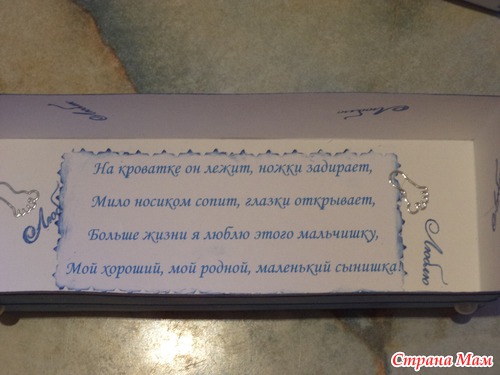 На кроватке он лежит, ножки задирает,
Мило носиком сопит, глазки открывает,
Больше жизни я люблю этого мальчишку,
Мой хороший, мой родной, маленький сынишка!
Люблю
Страна Мам